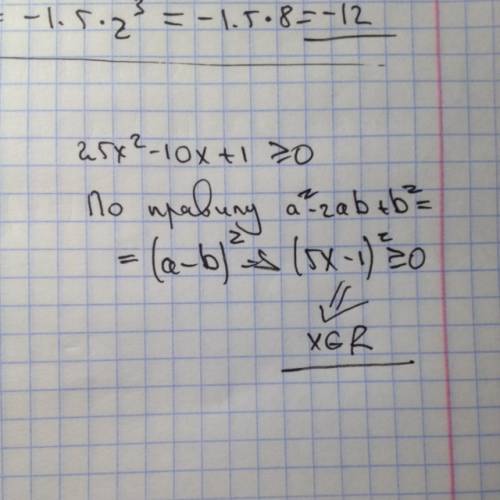 = -1.5·2³ = -1.5·8=-12
25x²-10x+1 ≥0
По правилу a²-2ab+b²=
=(a-b)² → (5x-1)²≥0
x∈R